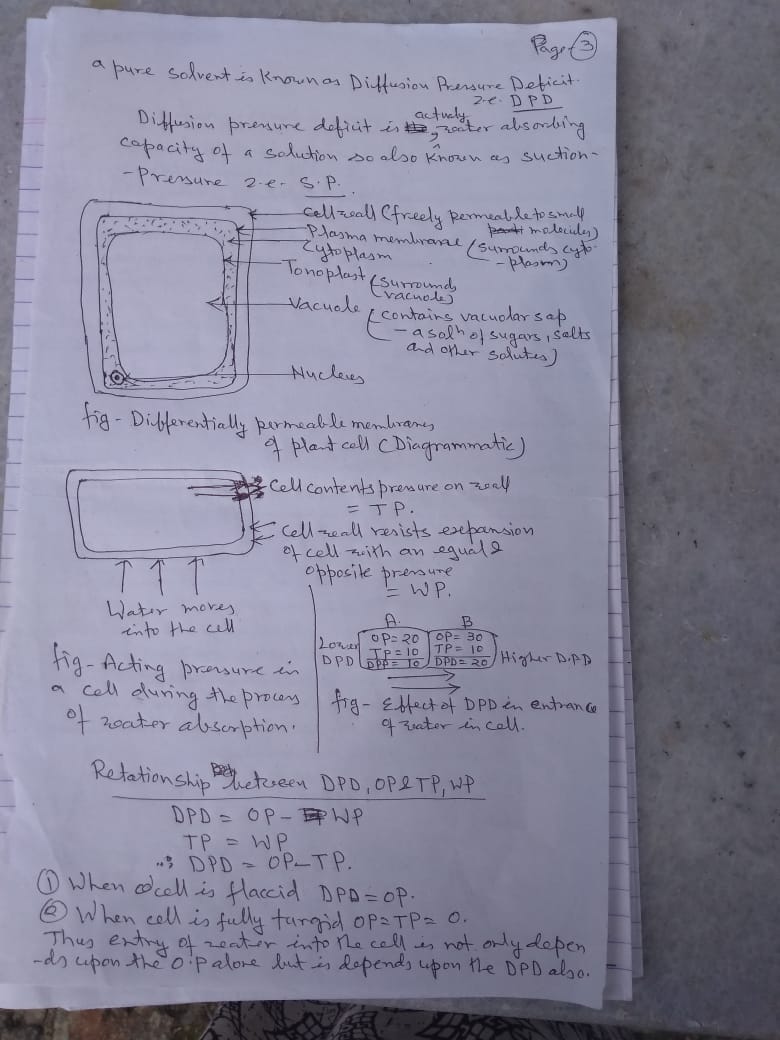 Page-3
a pure solvent is Known as Diffusion Pressure Deficit.
i.e. DPD
Diffusion pressure deficit is actualy water absorbing
capacity of a solution so also Known as suction-
-Pressure i.e. S.P.
Cell wall (freely permeable to small
molecules)
Plasma membrane (surrounds cyto-
-plasm)
Cytoplasm
Tonoplast (surrounds
vacuole)
Vacuole (contains vacuolar sap
- a solⁿ of sugars, salts
and other solutes)
Nucleus
fig - Differentially permeable membranes
of plant cell (Diagrammatic)
Cell contents pressure on wall
= TP.
Cell wall resists expansion
of cell with an equal &
opposite pressure
= WP.
Water moves
into the cell
fig - Acting pressure in
a cell during the process
of water absorption.
A. B
Lower DPD
OP = 20
TP = 10
DPD = 10
OP = 30
TP = 10
DPD = 20
Higher DPD
fig - Effect of DPD in entrance
of water in cell.
Relationship between DPD, OP & TP, WP
DPD = OP - WP
TP = WP
∴ DPD = OP - TP.
① When cell is flaccid DPD = OP.
② When cell is fully turgid OP = TP = 0.
Thus entry of water into the cell is not only depen
-ds upon the O.P alone but is depends upon the DPD also.